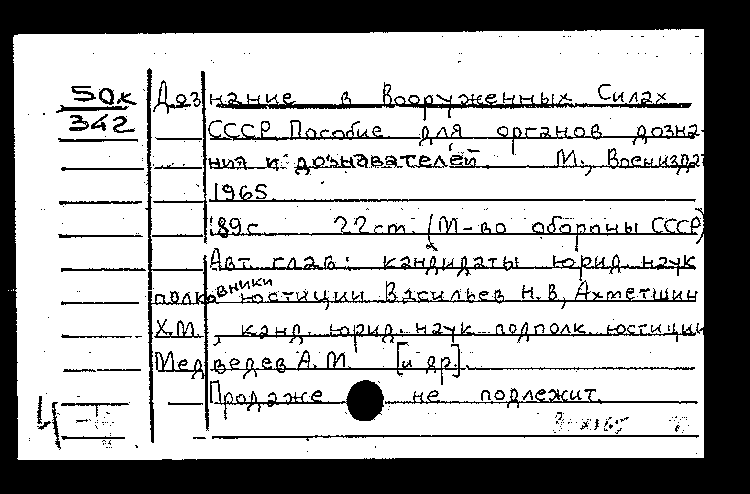 50к Дознание в Вооруженных Силах
342 СССР. Пособие для органов дозна-
ния и дознавателей. М., Воениздат
1965.
189 с. 22 cm. (М-во обороны СССР)
Авт. глав: кандидаты юрид. наук
полковники юстиции Васильев Н.В., Ахметшин
Х.М., канд. юрид. наук подполк. юстиции
Медведев А.М. [и др.].
Продаже не подлежит.